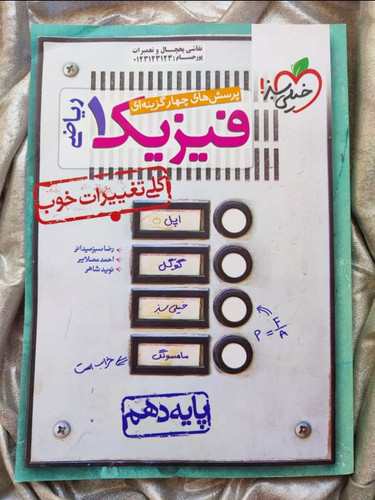 نقاشی یخچال و تعمیرات
پورحسام: ۰۱۲۳۱۲۳۱۲۳
خیلی سبز!
پرسش‌های چهارگزینه‌ای
فیزیک ۱
ریاضی
کلی تغییرات خوب
اپل
گوگل
خیلی سبز
سامسونگ
رضا سبزمیدانی
احمد مصلایی
نوید شاهی
P = F/A
خراب است
پایه دهم